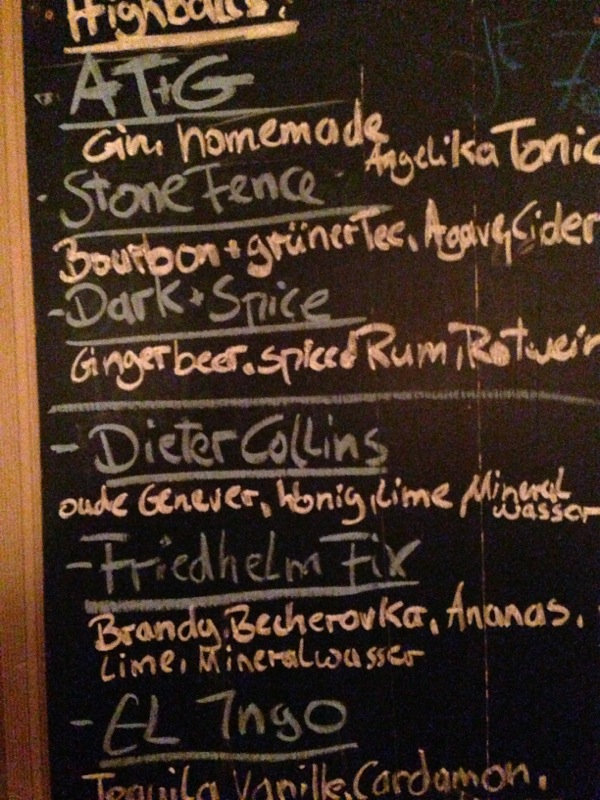 Highballs:
AT+G
Gin, homemade Angelika Tonic
- Stone Fence -
Bourbon + grüner Tee, Agave, Cider
- Dark + Spice
Gingerbeer, spiced Rum, Rotwein
- Dieter Collins
oude Genever, Honig, Lime Mineral wasser
- Friedhelm Fix
Brandy, Becherovka, Ananas,
Lime, Mineralwasser
- EL Ingo
Tequila Vanille, Cardamon,